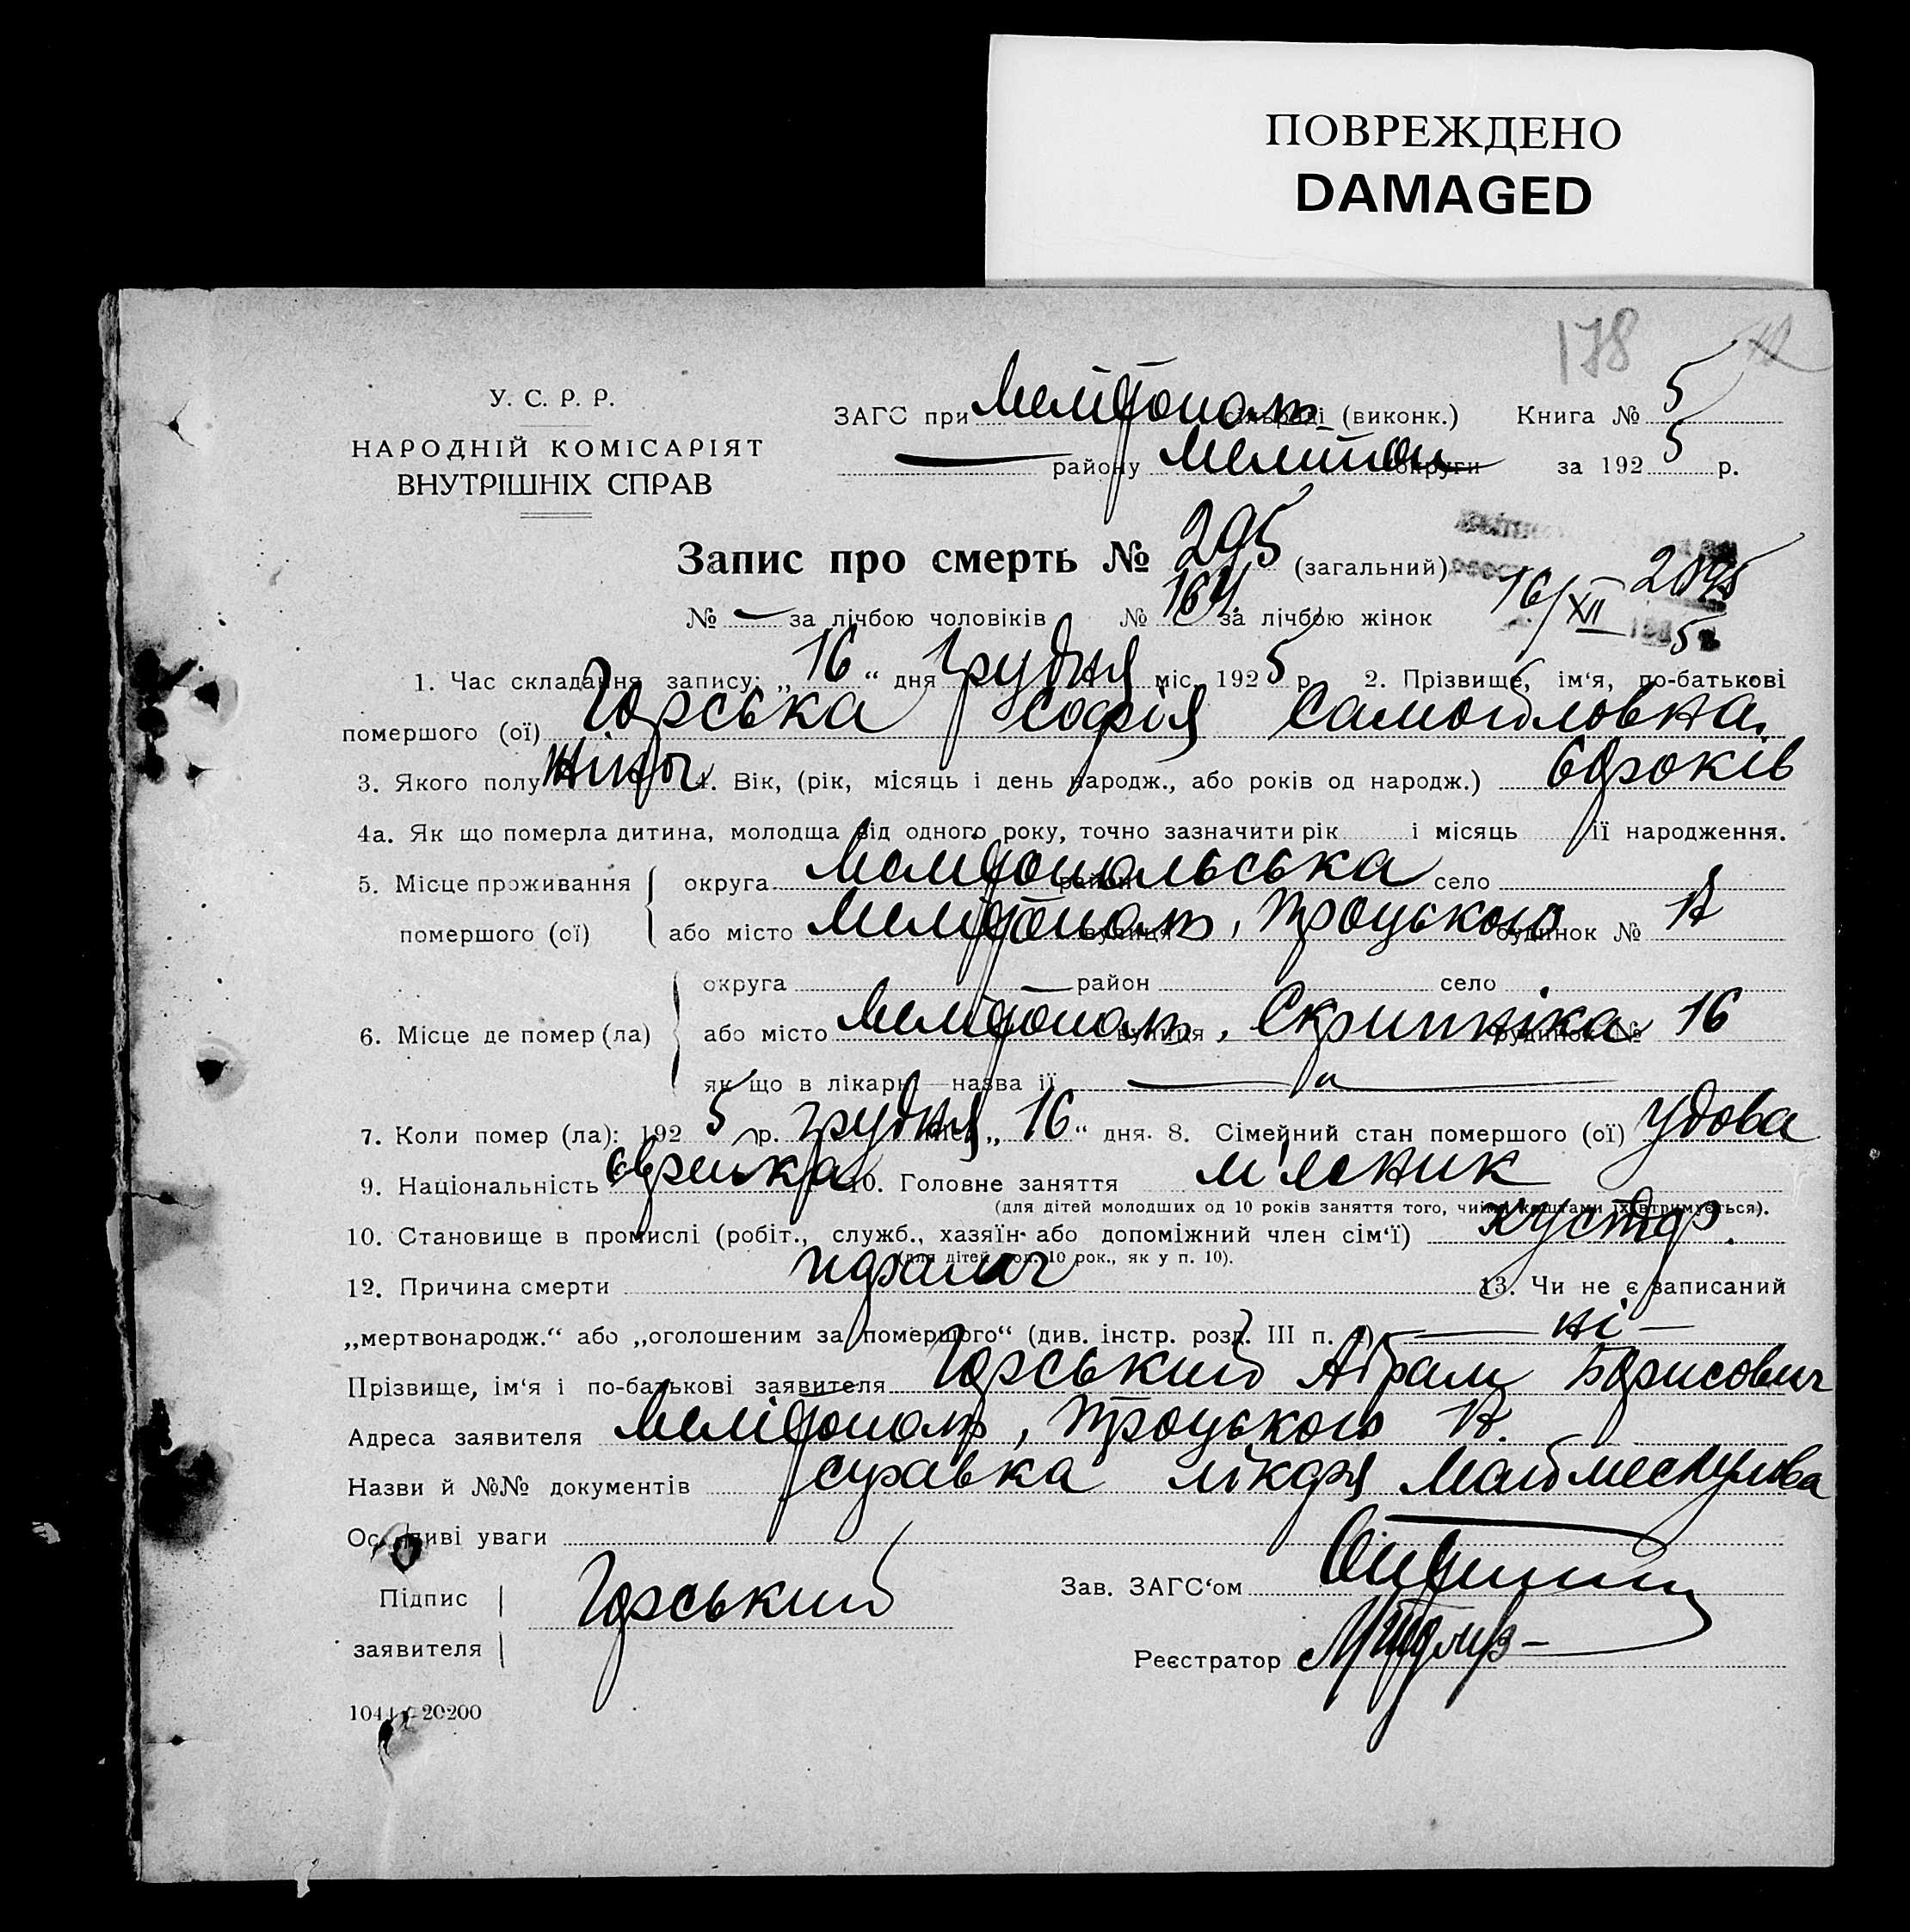 ПОВРЕЖДЕНО
DAMAGED
178
У. С. Р. Р.
НАРОДНІЙ КОМІСАРІЯТ
ВНУТРІШНІХ СПРАВ
ЗАГС при Мелітополь сільраді (виконк.) Книга № 5
— району Мелітоп округи за 192 5 р.
Запис про смерть № 295 (загальний)
№ — за лічбою чоловіків № 164 за лічбою жінок
16/XII 5
1. Час складання запису: „ 16 “ дня грудня міс. 192 5 р. 2. Прізвище, ім‘я, по-батькові
помершого (ої) Горська Софія Самойловна
3. Якого полу жіноч 4. Вік, (рік, місяць і день народж., або років од народж.) років
4а. Як що померла дитина, молодща від одного року, точно зазначити рік і місяць її народження.
5. Місце проживання помершого (ої) округа Мелітопольська район село
або місто Мелітополь, вулиця Троцького будинок №
6. Місце де помер (ла) округа — район село
або місто Мелітополь, вулиця Скрипніка будинок № 16
як що в лікарні—назва її — „ —
7. Коли помер (ла): 192 5 р. грудня міс. „ 16 “ дня. 8. Сімейний стан помершого (ої) удова
9. Національність єврейка 10. Головне заняття
(для дітей молодших од 10 років заняття того, чиїми коштами їх втримується).
10. Становище в промислі (робіт., служб., хазяїн або допоміжний член сім‘ї) кустар.
(для дітей мол. 10 рок., як у п. 10).
12. Причина смерти параліч 13. Чи не є записаний
„мертвонародж.“ або „оголошеним за помершого“ (див. інстр. розд. III п. ) — ні —
Прізвище, ім‘я і по-батькові заявителя Горський Абрам Борисович
Адреса заявителя Мелітополь, Троцького
Назви й №№ документів справка лікаря
Особливі уваги
Підпис заявителя Горський
Зав. ЗАГС‘ом
Реєстратор
20200